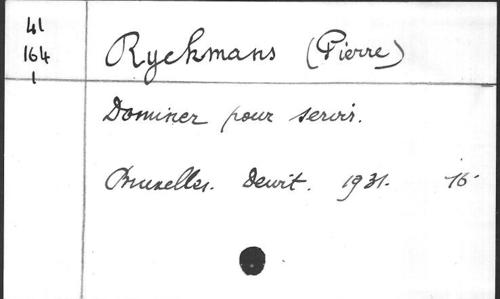 41
164
1
Ryckmans (Pierre)
Dominer pour servir.
Bruxelles. Dewit. 1931. 16°